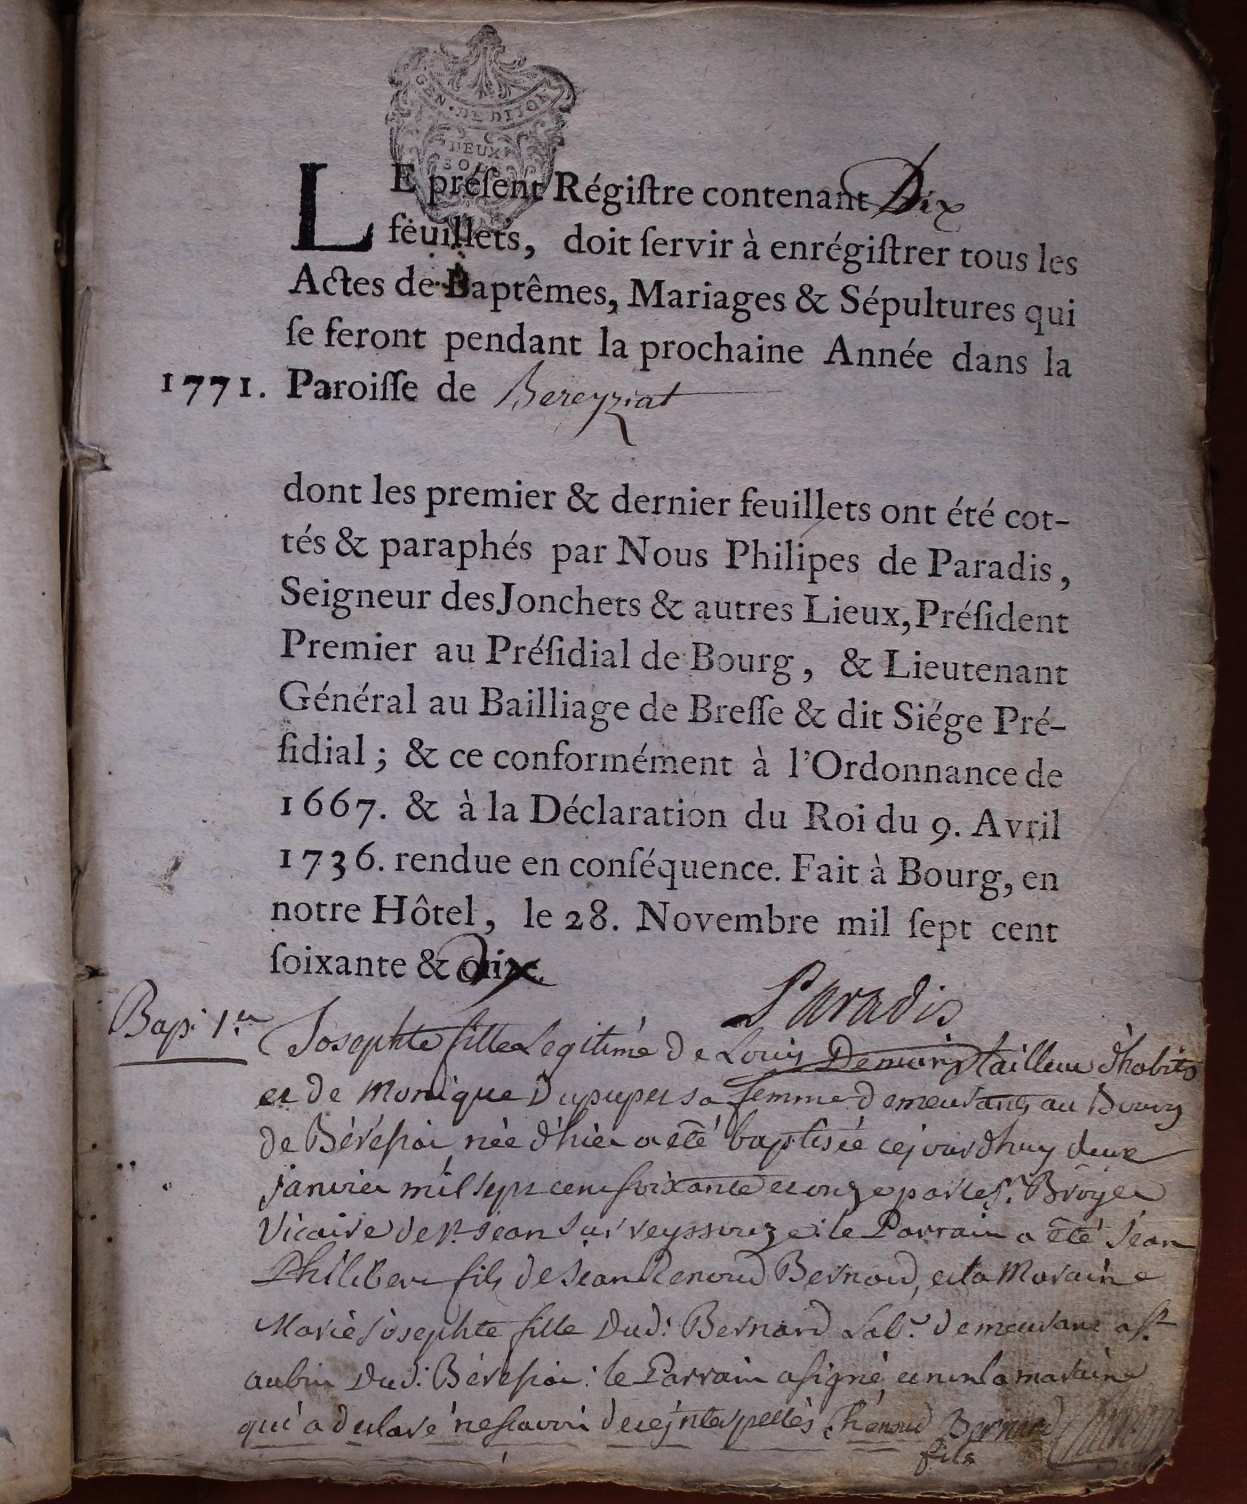 GEN. DE DIJON
DEUX
SOLS
LE préſent Régiſtre contenant Dix
feuillets, doit ſervir à enrégiſtrer tous les
Actes de Baptêmes, Mariages & Sépultures qui
ſe feront pendant la prochaine Année dans la
1771. Paroiſſe de Bereyziat
dont les premier & dernier feuillets ont été cot-
tés & paraphés par Nous Philipes de Paradis,
Seigneur des Jonchets & autres Lieux, Préſident
Premier au Préſidial de Bourg, & Lieutenant
Général au Bailliage de Breſſe & dit Siége Pré-
ſidial; & ce conformément à l'Ordonnance de
1667. & à la Déclaration du Roi du 9. Avril
1736. rendue en conſéquence. Fait à Bourg, en
notre Hôtel, le 28. Novembre mil ſept cent
ſoixante & dix
Paradis
Bap. 1.er Josephte fille Legitime de Louis tailleur d'habits
et de Monique Dupupet sa femme demeurans au Bourg
de née d'hier a été baptisée cejourdhuy deux
janvier mil sept cent soixante et onze par le Sr. Broyer
Vicaire de St. Jean sur reyssouze : le Parrain a été Jean
Philibert fils de Jean Renoud Bernard, et la Maraine
Marie josephte fille Dud. Bernard Lab.r demeurant a St
aubin Dud. : le Parrain a signé et non la maraine
qui a declaré ne scavoir de ce interpellés Renoud Bernard
fils